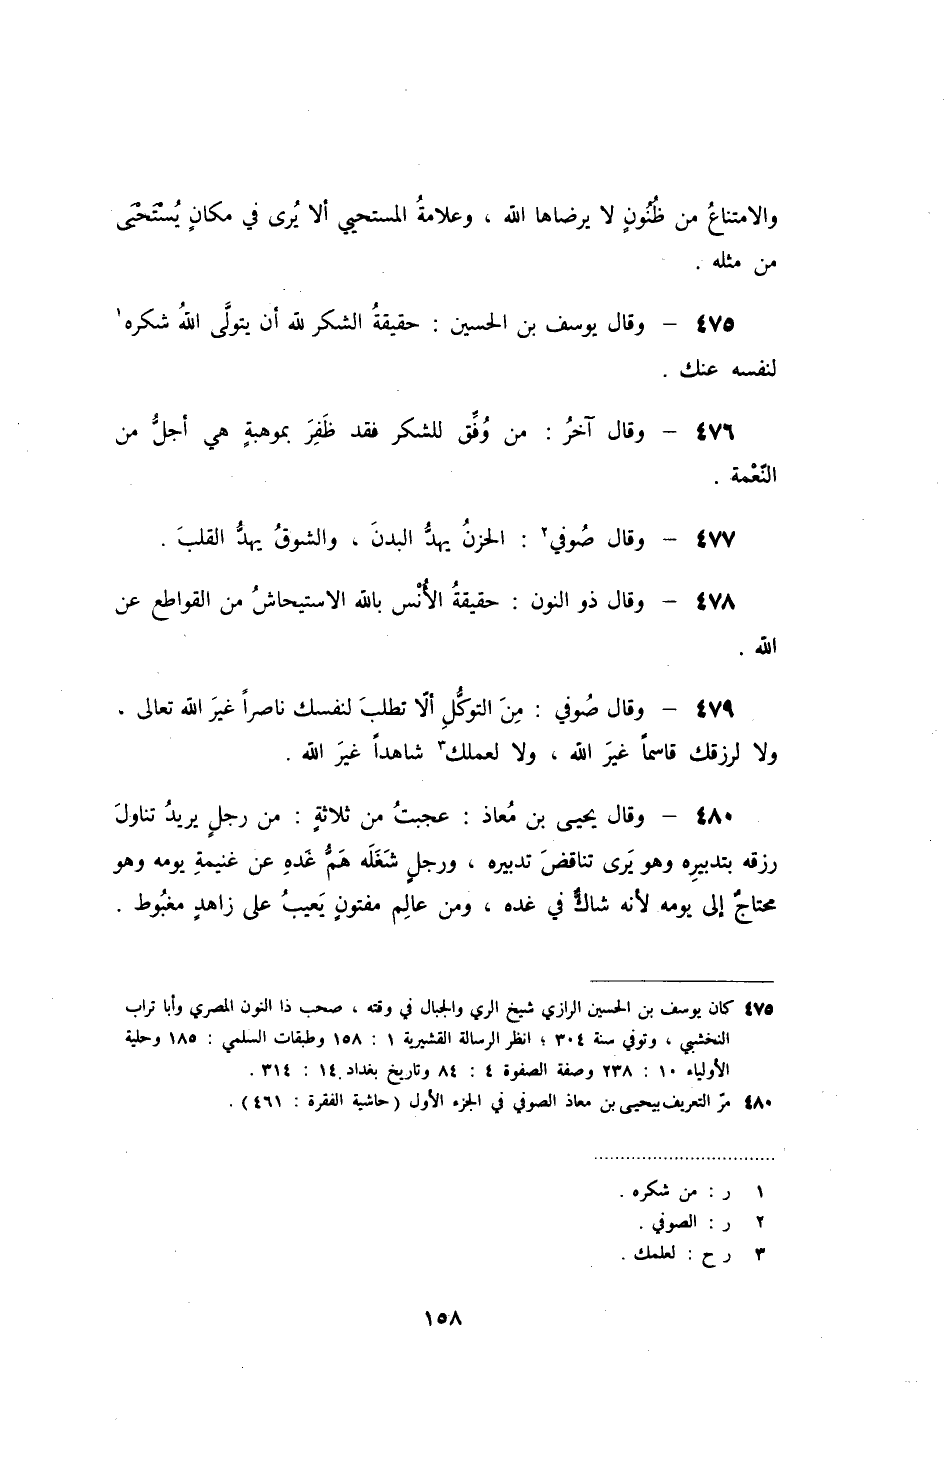 والامتناعُ من ظُنُونٍ لا يرضاها الله ، وعلامةُ المستحيي ألا يُرى في مكانٍ يُسْتَحْيَى
من مثله .
٤٧٥ – وقال يوسف بن الحسين : حقيقةُ الشكر لله أن يتولَّى اللهُ شكره١
لنفسه عنك .
٤٧٦ – وقال آخرُ : من وُفِّق للشكر فقد ظَفِرَ بموهبةٍ هي أجلُّ من
النّعْمة .
٤٧٧ – وقال صُوفي٢ : الحزنُ يهدُّ البدنَ ، والشوقُ يهدُّ القلبَ .
٤٧٨ – وقال ذو النون : حقيقةُ الأُنْس بالله الاستيحاشُ من القواطع عن
الله .
٤٧٩ – وقال صُوفي : مِنَ التوكُّلِ ألّا تطلبَ لنفسك ناصراً غيرَ الله تعالى .
ولا لرزقك قاسماً غيرَ الله ، ولا لعملك٣ شاهداً غيرَ الله .
٤٨٠ – وقال يحيى بن مُعاذ : عجبتُ من ثلاثةٍ : من رجلٍ يريدُ تناولَ
رزقه بتدبيرِه وهو يَرى تناقضَ تدبيره ، ورجلٍ شَغَلَه هَمُّ غَدهِ عن غنيمةِ يومه وهو
محتاجٌ إلى يومه لأنه شاكٌّ في غده ، ومن عالِم مفتونٍ يَعيبُ على زاهدٍ مغبُوط .
٤٧٥ كان يوسف بن الحسين الرازي شيخ الري والجبال في وقته ، صحب ذا النون المصري وأبا تراب
النخشبي ، وتوفي سنة ٣٠٤ ؛ انظر الرسالة القشيرية ١ : ١٥٨ وطبقات السلمي : ١٨٥ وحلية
الأولياء ١٠ : ٢٣٨ وصفة الصفوة ٤ : ٨٤ وتاريخ بغداد ١٤ : ٣١٤ .
٤٨٠ مرّ التعريف بيحيى بن معاذ الصوفي في الجزء الأول ( حاشية الفقرة : ٤٦١ ) .
١ ر : من شكره .
٢ ر : الصوفي .
٣ ر ح : لعلمك .
١٥٨